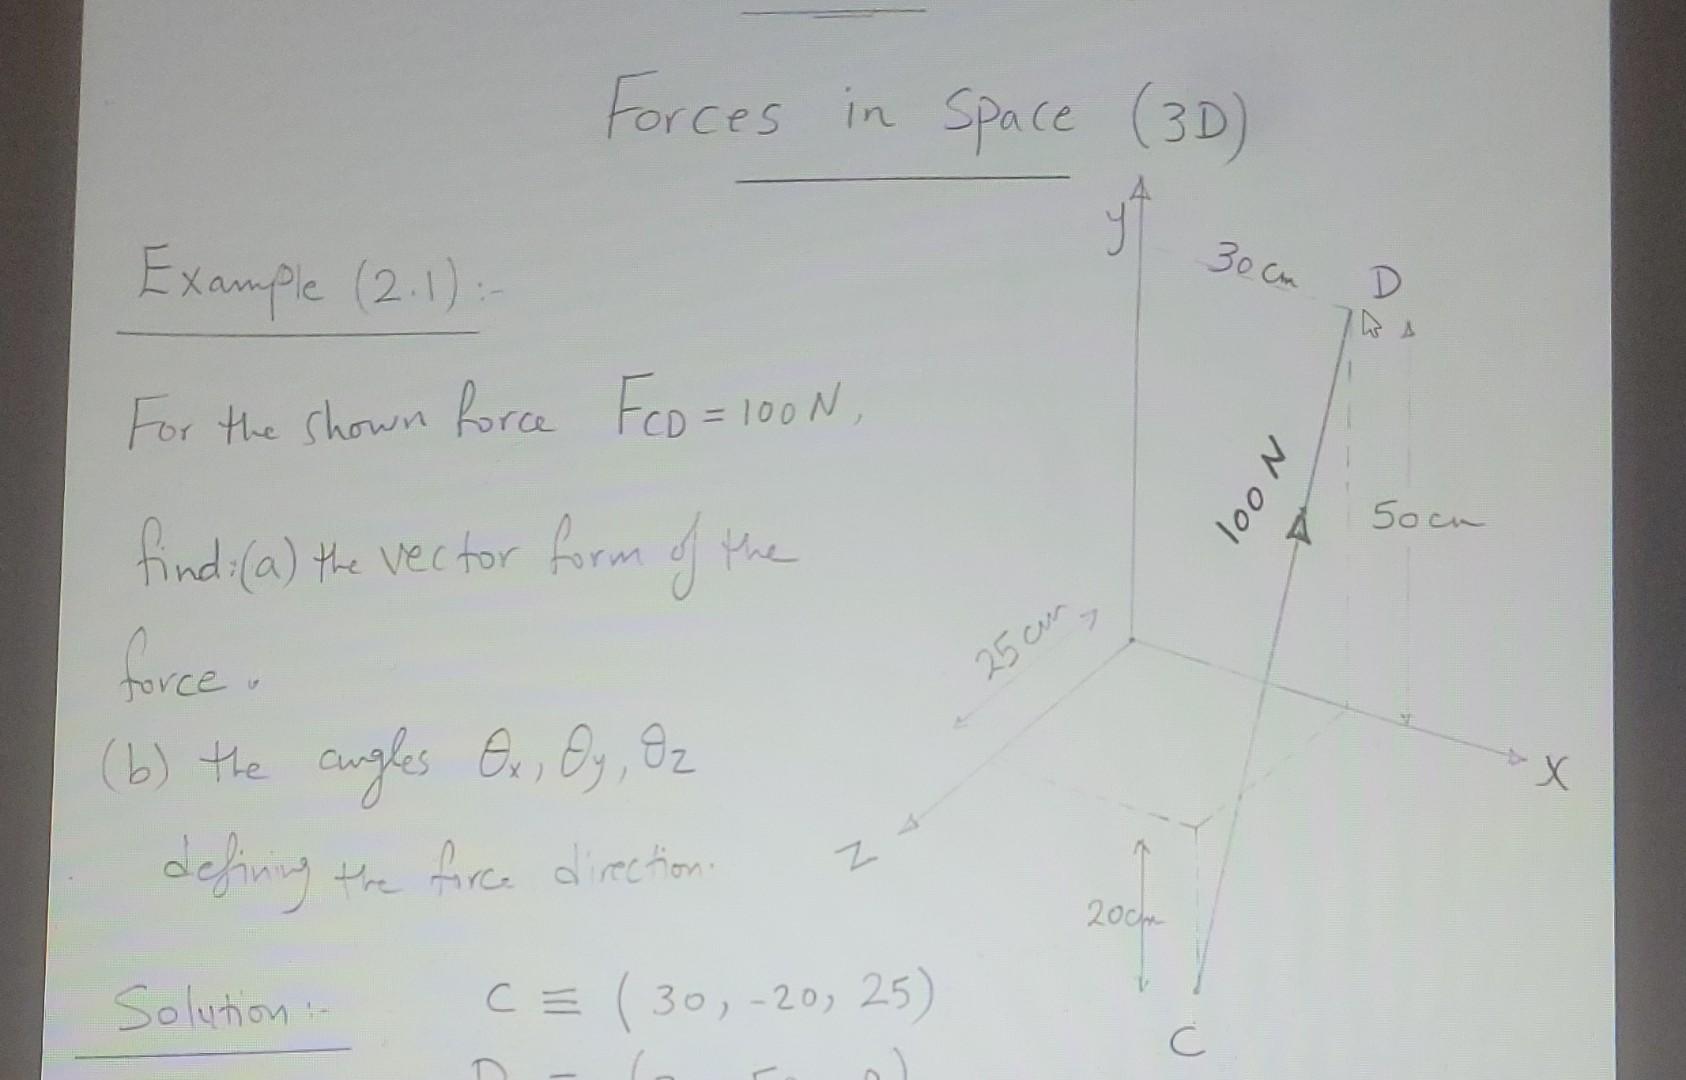 Forces in Space (3D)
y
30 cm
D
Example (2.1):-
For the shown force F_CD = 100 N,
100 N
50 cm
find:(a) the vector form of the
25 cm
force.
(b) the angles θx, θy, θz
x
z
defining the force direction.
20cm
Solution:- C ≡ (30, -20, 25)
C